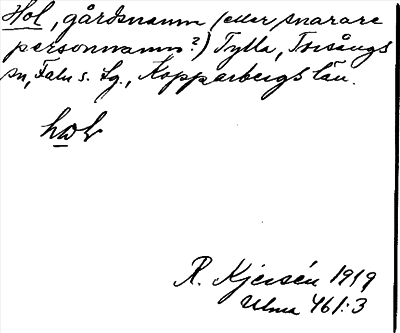 Hol, gårdsnamn (eller snarare
personnamn?) Tylla, Torsångs
sn, Falu s. Lg., Kopparbergs län.
hol
R. Kjersén 1919
Ulma 461:3